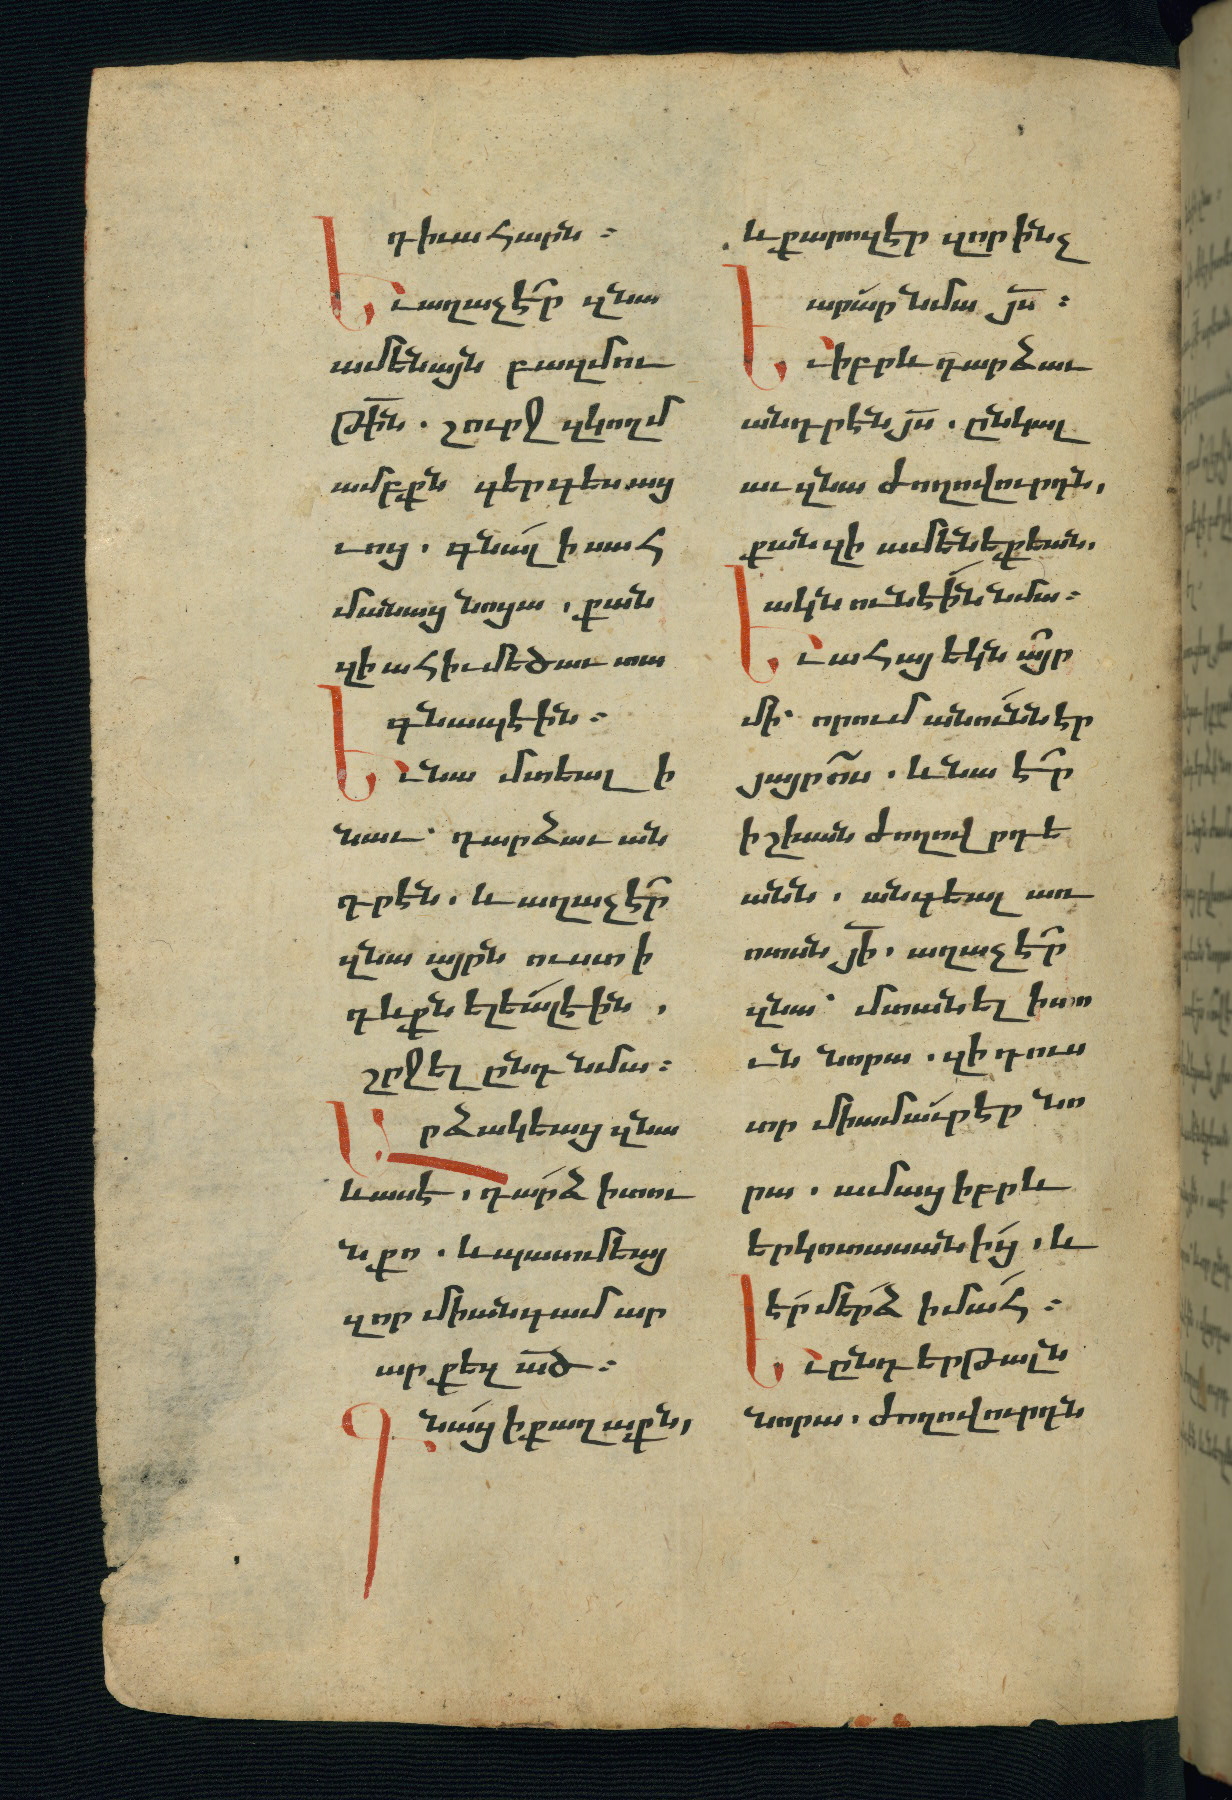 դիւահարն ։
Եւ աղաչէր զնա
ամենայն բազմու
թիւն . շուրջ զկողմ
ամբքն գերգեսաց
ւոց . գնալ ի սահ
մանաց նոցա . քան
զի ահիւ մեծաւ տա
գնապէին ։
Եւ նա մտեալ ի
նաւ՝ դարձաւ ան
դրէն . և աղաչէր
զնա այրն ուստի
դևքն ելեալ էին ,
շրջել ընդ նմա ։
Արձակեաց զնա
և ասէ , դարձ ի տու
ն քո . և պատմեաց
զոր միանգամ ար
ար քեզ ա՟ծ ։
Գնաց ի քաղաքն ,
և քարոզէր զոր ինչ
արար նմա յ՟ս ։
Եւ իբրև դարձաւ
անդրէն յ՟ս . ընկալ
աւ զնա ժողովուրդն ,
քանզի ամենեքեան ,
ակն ունէին նմա ։
Եւ ահա եկն այր
մի՝ որում անուն էր
յայրոս . և նա էր
իշխան ժողովրդե
անն . անգեալ առ
ոտսն յ՟ի , աղաչէր
զնա՝ մտանել ի տո
ւն նորա . զի դուս
տր միամաւր էր նո
րա . ամաց իբրև
երկոտասանից , և
էր մերձ ի մահ ։
Եւ ընդ երթալն
նորա . ժողովուրդն